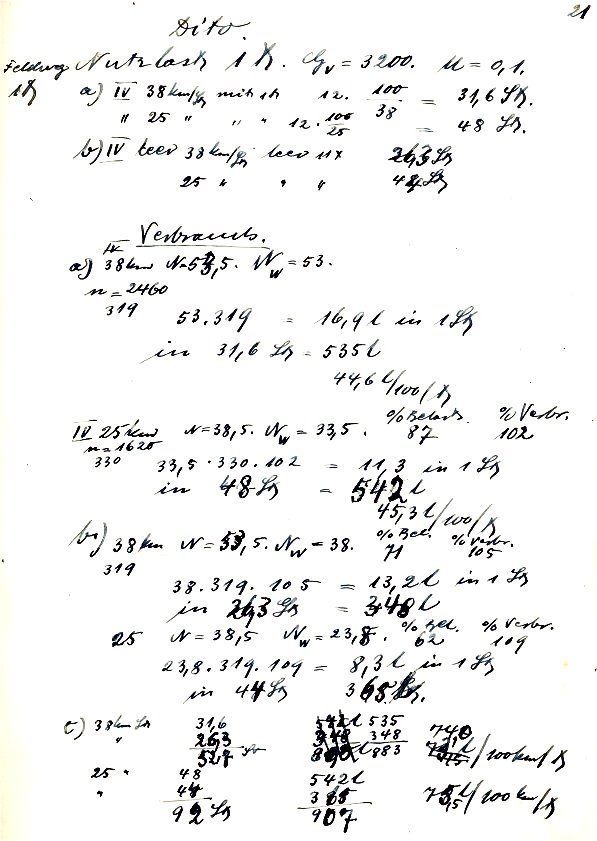 21
Dito.
Feldweg Nutzlast 1 t. Gv = 3200. u = 0,1.
1 t
a) IV 38 km/St mit 1t 12. 100/38 = 31,6 St.
" 25 " " " 12. 100/25 = 48 St.
b) IV leer 38 km/St leer 11x 26,3 St
25 " " " 44 St
Verbrauch.
IV
a) 38 km N=53,5. Nw = 53.
n = 2460
319
53.319 = 16,9 l in 1 St
in 31,6 St = 535 l
44,6 l/100/t
IV 25 km N=38,5. Nw = 33,5. % Belast. 87 % Verbr. 102
n=1620
330
33,5.330.102 = 11,3 in 1 St
in 48 St = 542 l
45,3 l/100/t
b) 38 km N=53,5. Nw = 38. % Bel. 71 % Verbr. 105
319
38.319.105 = 13,2 l in 1 St
in 26,3 St = 348 l
25 N=38,5 Nw=23,8. % Bel. 62 % Verbr. 109
23,8.319.109 = 8,3 l in 1 St
in 44 St 365 l.
c) 38 km St 31,6 535
" 26,3 348 740
St 883 /100 km/t
25 " 48 542 l
" 44 365 /100 km/t
92 St 907